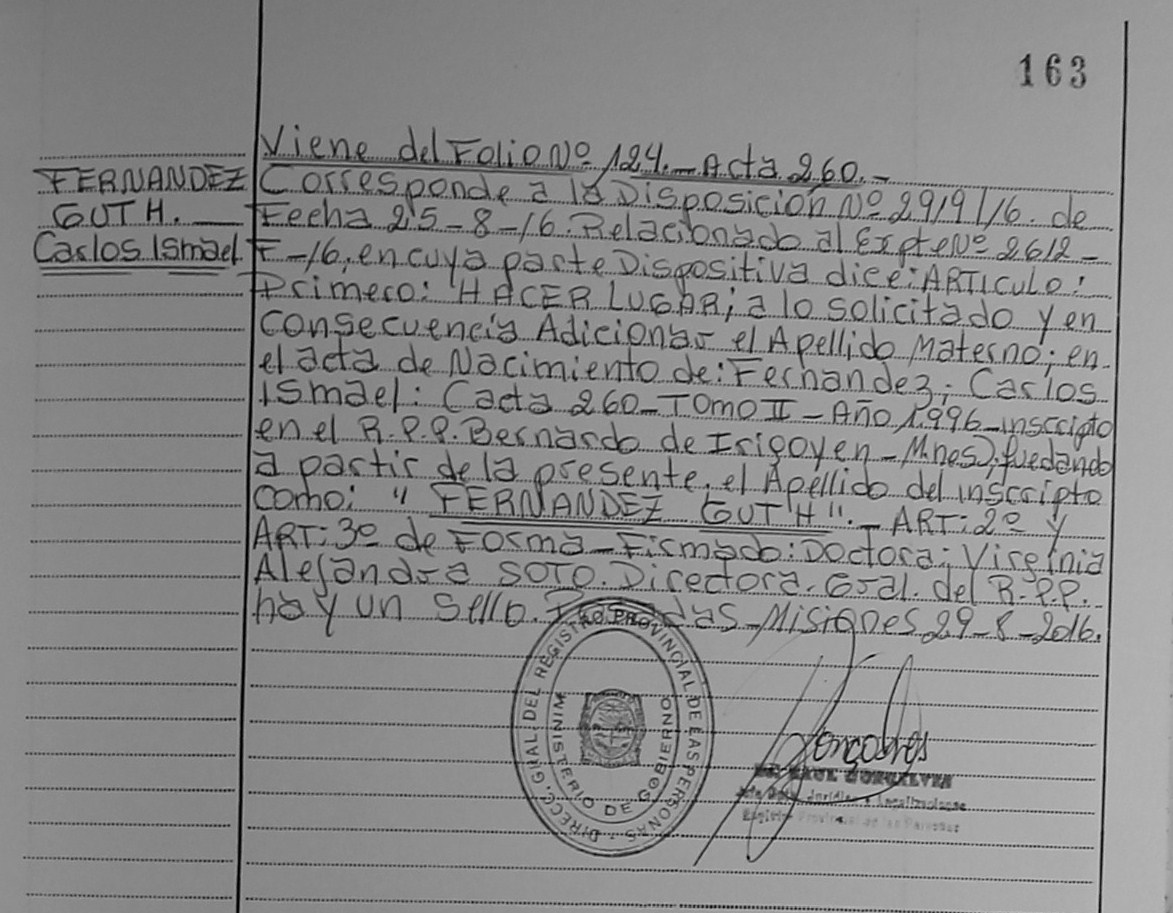 163
Viene del Folio Nº 124.- Acta 260.-
FERNANDEZ
GUTH.
Carlos Ismael
Corresponde a la Disposición Nº 2919/16. de
Fecha 25-8-16. Relacionado al Expte Nº 2612-
F-16, en cuya parte Dispositiva dice: ARTICULO:
Primero: HACER LUGAR; a lo solicitado y en
consecuencia Adicionar el Apellido Materno; en
el acta de Nacimiento de: Fernandez; Carlos
Ismael: (acta 260-TOMO II-Año 1.996-inscripto
en el R.P.P. Bernardo de Irigoyen-Mnes), quedando
a partir de la presente, el Apellido del inscripto
como: " FERNANDEZ GUTH".- ART: 2º y
ART: 3º de Forma-Firmado: Doctora; Virginia
Alejandra SOTO. Directora. Gral. del R.P.P.
hay un sello. Posadas-Misiones 29-8-2016.
DIRECC. GRAL. DEL REGISTRO PROVINCIAL DE LAS PERSONAS
MINISTERIO DE GOBIERNO
Gonçalves
RAUL GONCALVES
Registro Provincial de las Personas